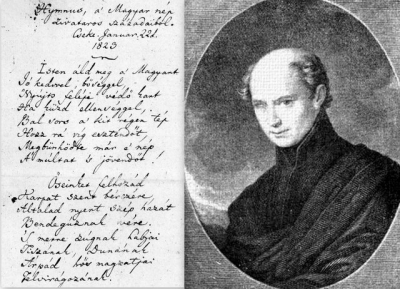 Hymnus, a' Magyar nép
zivataros századaiból.
Cseke, Januar. 22d.
1823
Isten áld meg a' Magyart
Jó kedvvel, bőséggel,
Nyujts feléje védő kart
Ha küzd ellenséggel,
Bal sors a' kit régen tép
Hozz rá víg esztendőt,
Megbünhödte már e' nép
A' multat 's jövendőt!
Őseinket felhozád
Karpat szent bérczére
Általad nyert szép hazát
Bendegúznak vére.
'S merre zugnak habjai
Tiszának, Dunának
Árpád hős magzatjai
Felvirágozának.